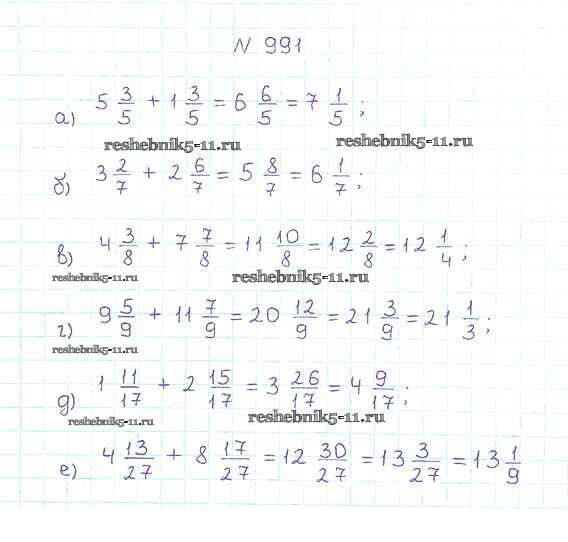 N 991
а) 5 3/5 + 1 3/5 = 6 6/5 = 7 1/5 ;
reshebnik5-11.ru reshebnik5-11.ru
б) 3 2/7 + 2 6/7 = 5 8/7 = 6 1/7 ;
в) 4 3/8 + 7 7/8 = 11 10/8 = 12 2/8 = 12 1/4 ;
reshebnik5-11.ru reshebnik5-11.ru
г) 9 5/9 + 11 7/9 = 20 12/9 = 21 3/9 = 21 1/3 ;
reshebnik5-11.ru
д) 1 11/17 + 2 15/17 = 3 26/17 = 4 9/17 ;
reshebnik5-11.ru reshebnik5-11.ru
е) 4 13/27 + 8 17/27 = 12 30/27 = 13 3/27 = 13 1/9